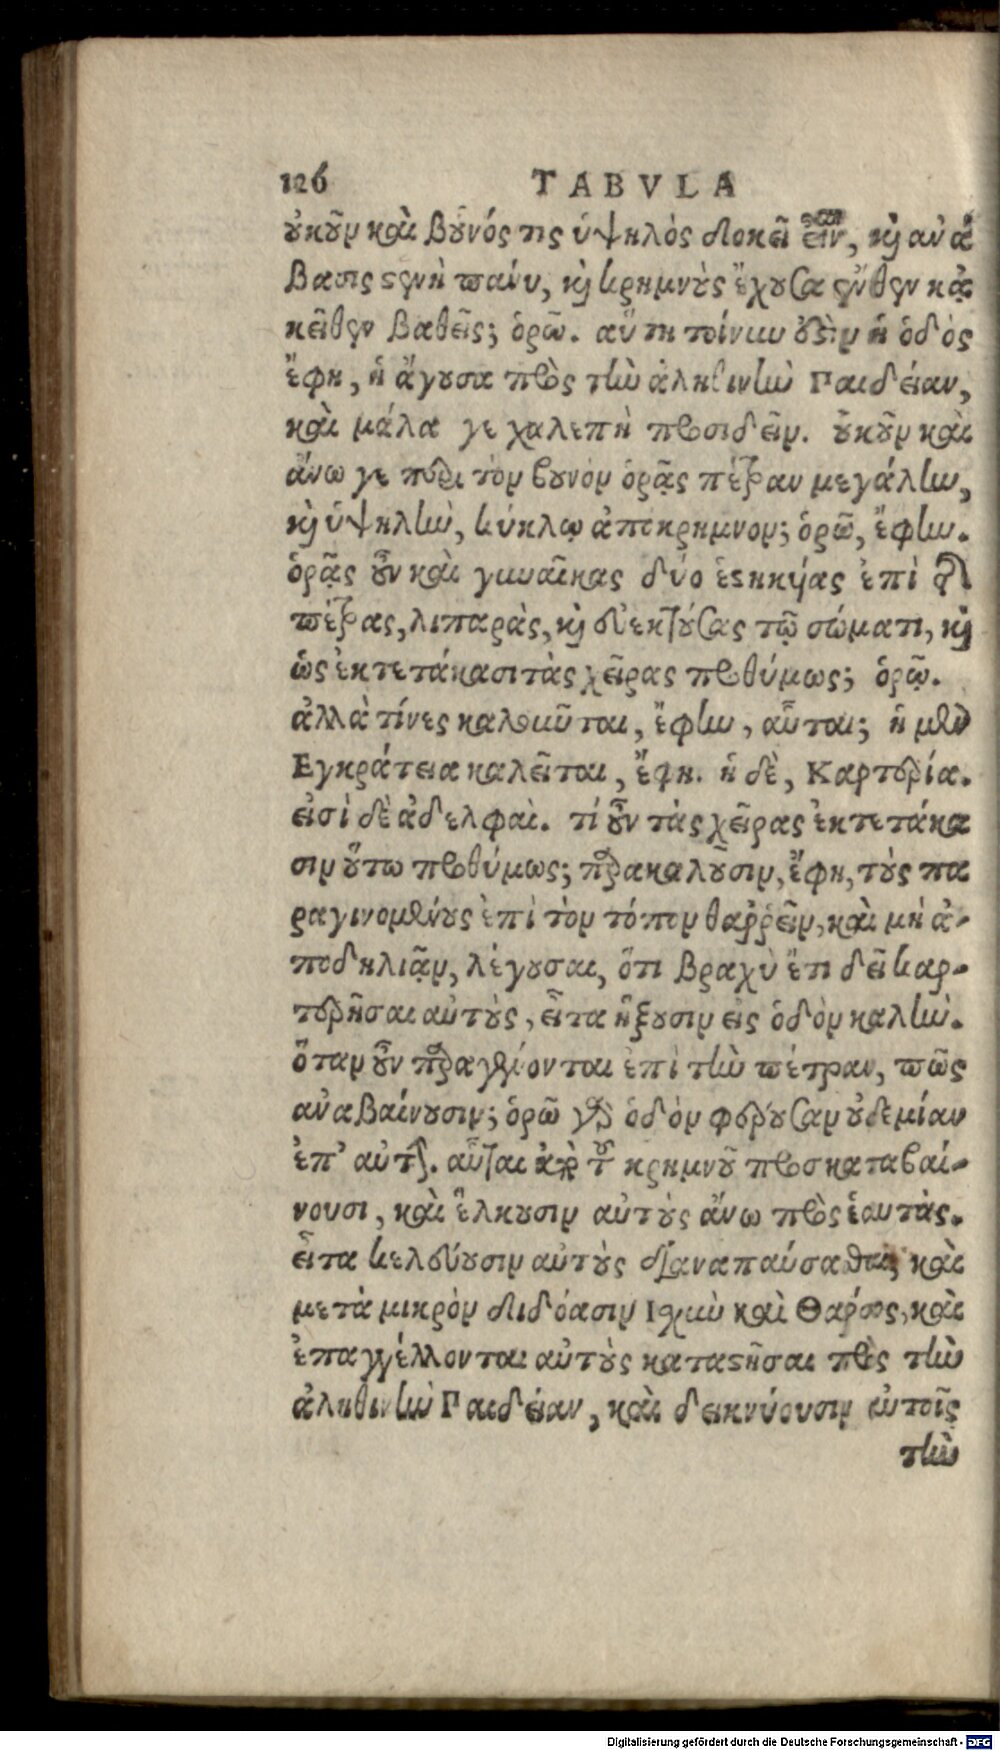 126 TABVLA
οὐκοῦν καὶ βουνός τις ὑψηλὸς δοκεῖ εἶν, καὶ ἀνά
βασις στενὴ πάνυ, καὶ κρημνοὺς ἔχουσα ἔνθεν κἀ
κεῖθεν βαθεῖς; ὁρῶ. αὕτη τοίνυν ἐστὶν ἡ ὁδὸς
ἔφη, ἡ ἄγουσα πρὸς τὴν ἀληθινὴν Παιδείαν,
καὶ μάλα γε χαλεπὴ προσιδεῖν. οὐκοῦν καὶ
ἄνω γε περὶ τὸν βουνὸν ὁρᾷς πέτραν μεγάλην,
καὶ ὑψηλὴν, κύκλῳ ἀπόκρημνον; ὁρῶ, ἔφην.
ὁρᾷς οὖν καὶ γυναῖκας δύο ἑστηκυίας ἐπὶ τῆς
πέτρας, λιπαρὰς, καὶ εὐεκτούσας τῷ σώματι, καὶ
ὡς ἐκτετάκασι τὰς χεῖρας προθύμως; ὁρῶ.
ἀλλὰ τίνες καλοῦνται, ἔφην, αὗται; ἡ μὲν
Ἐγκράτεια καλεῖται, ἔφη. ἡ δὲ, Καρτερία.
εἰσὶ δὲ ἀδελφαί. τί οὖν τὰς χεῖρας ἐκτετάκα
σιν οὕτω προθύμως; παρακαλοῦσιν, ἔφη, τοὺς πα
ραγινομένους ἐπὶ τὸν τόπον θαῤῥεῖν, καὶ μὴ ἀ-
ποδηλιᾷν, λέγουσαι, ὅτι βραχὺ ἔτι δεῖ καρ-
τερῆσαι αὐτοὺς, εἶτα ἥξουσιν εἰς ὁδὸν καλήν.
ὅταν οὖν παραγένονται ἐπὶ τὴν πέτραν, πῶς
ἀναβαίνουσιν; ὁρῶ γὰρ ὁδὸν φέρουσαν οὐδεμίαν
ἐπ' αὐτήν. αὗται ἀπὸ τοῦ κρημνοῦ προσκαταβαί-
νουσι, καὶ ἕλκουσιν αὐτοὺς ἄνω πρὸς ἑαυτάς.
εἶτα κελεύουσιν αὐτοὺς διαναπαύσασθαι, καὶ
μετὰ μικρὸν διδόασιν Ἰσχὺν καὶ Θάρσος, καὶ
ἐπαγγέλλονται αὐτοὺς καταστῆσαι πρὸς τὴν
ἀληθινὴν Παιδείαν, καὶ δεικνύουσιν αὐτοῖς
τὴν
Digitalisierung gefördert durch die Deutsche Forschungsgemeinschaft - DFG